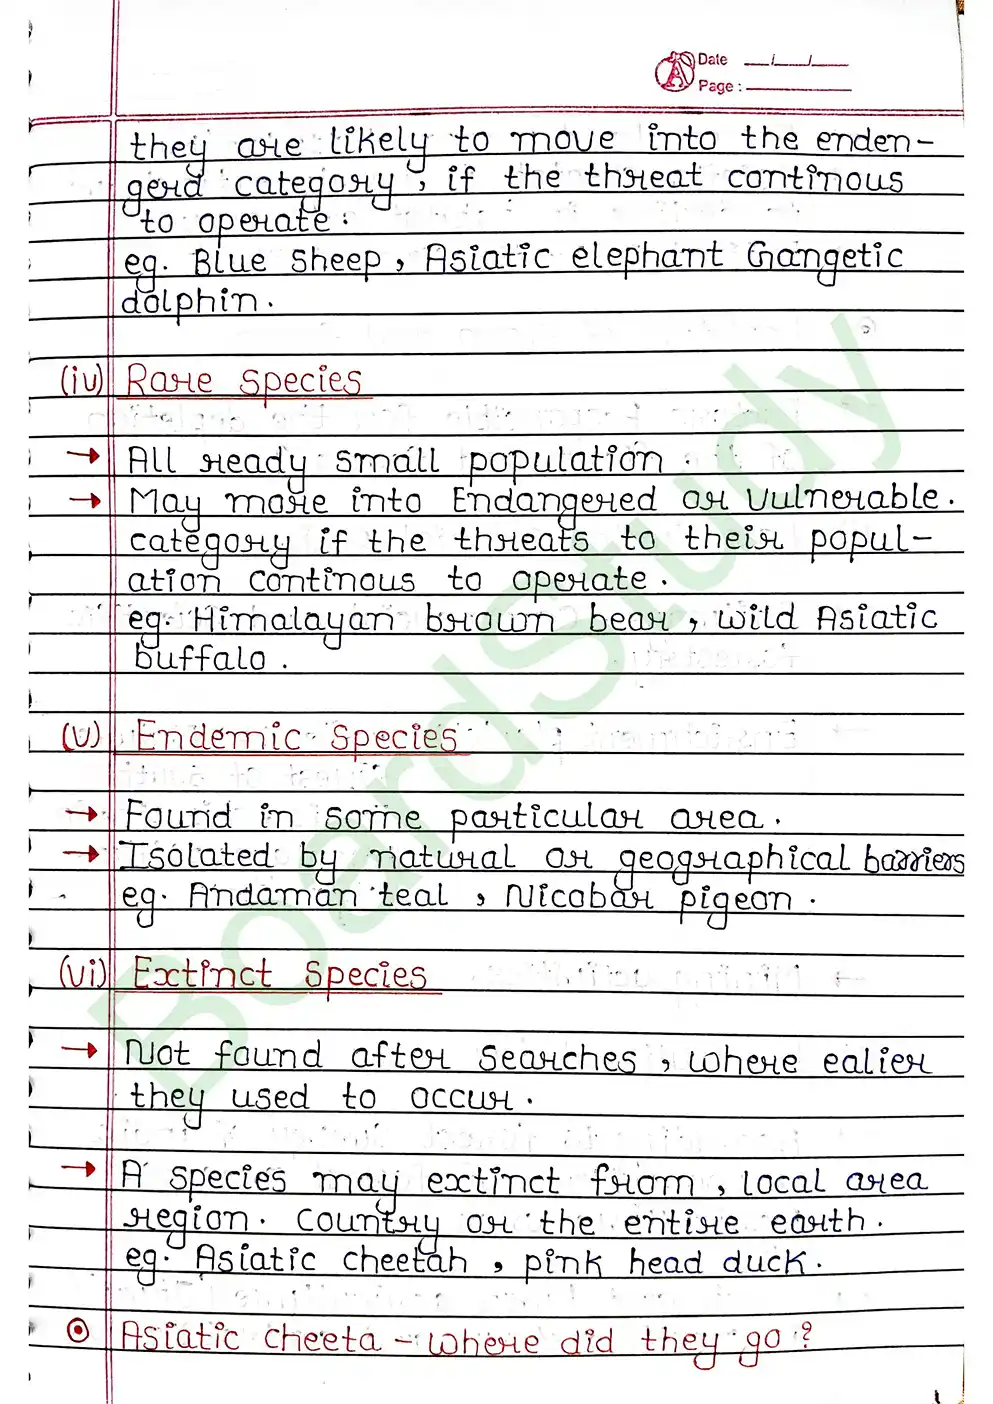 Date __/__/__
Page : ______
they are likely to move into the enden-
gerd category, if the threat continous
to operate.
eg. Blue sheep, Asiatic elephant Gangetic
dolphin.
(iv) Rare Species
→ All ready small population.
→ May more into Endangered or Vulnerable.
category if the threats to their popul-
ation continous to operate.
eg. Himalayan brown bear, wild Asiatic
buffalo.
(v) Endemic Species
→ Found in some particular area.
→ Isolated by natural or geographical barriers
eg. Andaman teal, Nicobar pigeon.
(vi) Extinct Species
→ Not found after searches, where ealier
they used to occur.
→ A species may extinct from, local area
region. Country or the entire earth.
eg. Asiatic cheetah, pink head duck.
Asiatic cheeta - where did they go?
BoardStudy